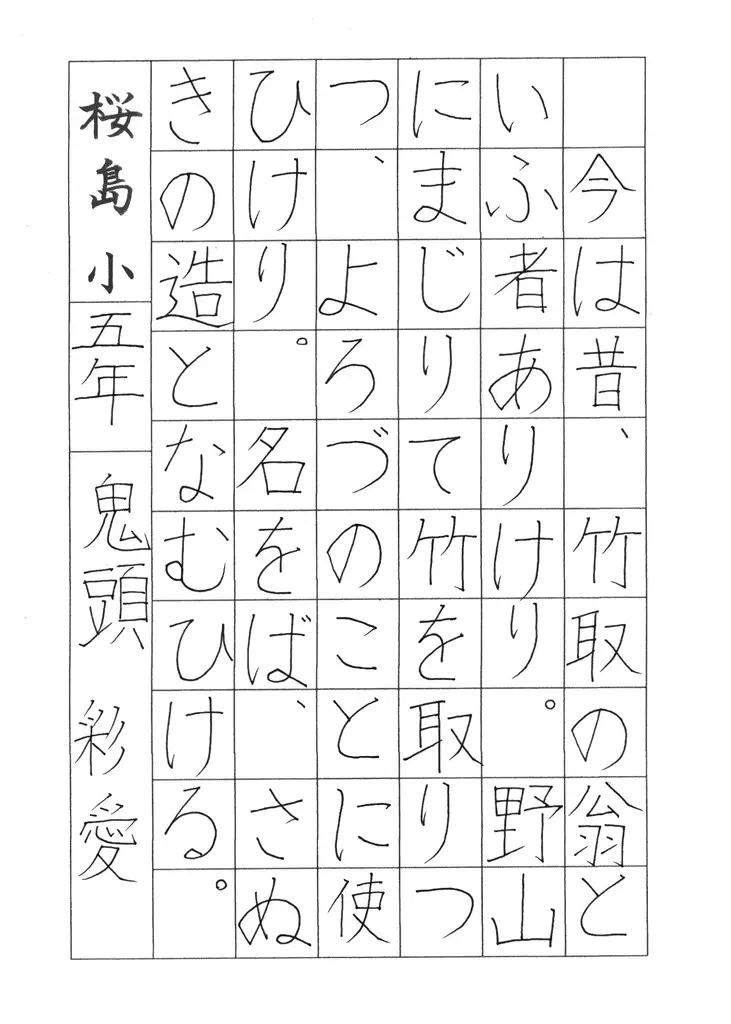 今は昔、竹取の翁と
いふ者ありけり。野山
にまじりて竹を取りつ
つ、よろづのことに使
ひけり。名をば、さぬ
きの造となむひける。
桜島小五年 鬼頭 彩愛